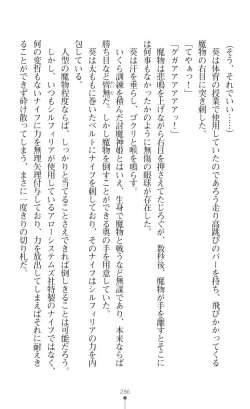 (そう、それでいい……)
葵は体育の授業で使用していたのであろう走り高跳びのバーを持ち、飛びかかってくる
魔物の右目に突き刺した。
「てやぁっ!」
「グガアアアアアアッ!」
魔物は悲鳴を上げながら右目を押さえてたじろぐが、数秒後、魔物が手を離すとそこに
は何事もなかったかのように無傷の眼球が存在した。
葵は汗を垂らし、ゴクリと喉を鳴らす。
いくら訓練を積んだ討魔神姫とはいえ、生身で魔物と戦うなど無謀であり、本来ならば
勝ち目など皆無だ。しかし魔物を倒すことができる奥の手を用意していた。
葵は太ももに巻いたベルトにナイフを刺しており、そのナイフはシルフィリアの力を内
包している。
人型の魔物程度ならば、しっかりと当てることさえできれば倒しきることは可能だろう。
しかし、いつもシルフィリアが使用しているアローシステムズ社特製のナイフと違い、
何の変哲もないナイフに力を無理矢理付与しており、力を放出してしまえばそれに耐えき
ることができず砕け散ってしまう、まさに一度きりの切り札だ。
286